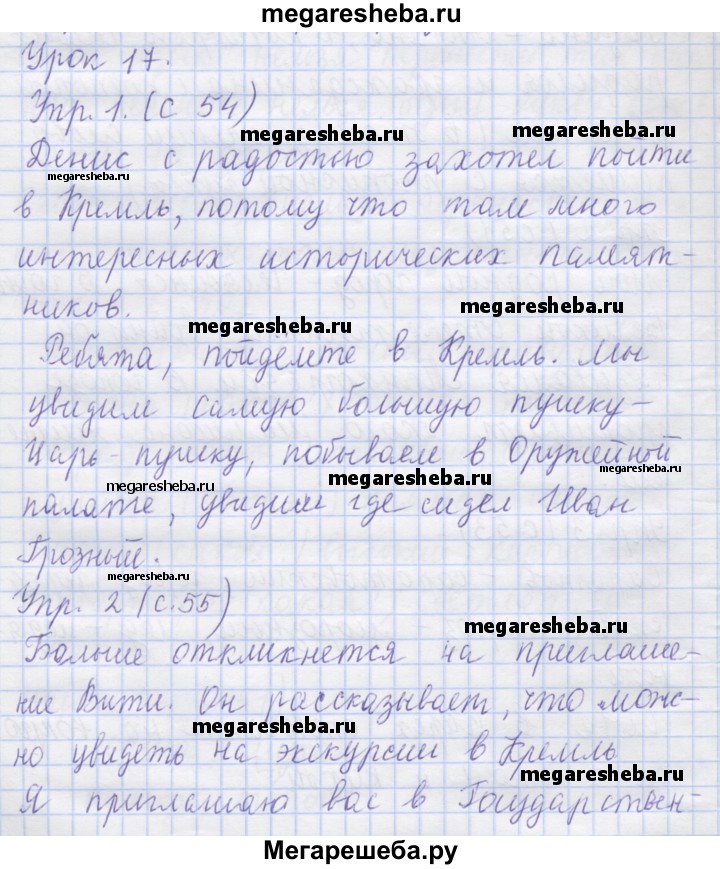 megaresheba.ru
Урок 17.
Упр. 1. (с 54)
megaresheba.ru
megaresheba.ru
Денис с радостью захотел пойти
megaresheba.ru
в Кремль, потому что там много
интересных исторических памят-
ников.
megaresheba.ru
megaresheba.ru
Ребята, пойдёмте в Кремль. Мы
увидим самую большую пушку-
Царь-пушку, побываем в Оружейной
megaresheba.ru
megaresheba.ru
megaresheba.ru
палате, увидим где сидел Иван
Грозный.
megaresheba.ru
Упр. 2 (с.55)
megaresheba.ru
Больше откликнется на приглаше-
ние Вити. Он рассказывает, что мож-
megaresheba.ru
но увидеть на экскурсии в Кремль
megaresheba.ru
Я приглашаю вас в Государствен-
Мегарешеба.ру